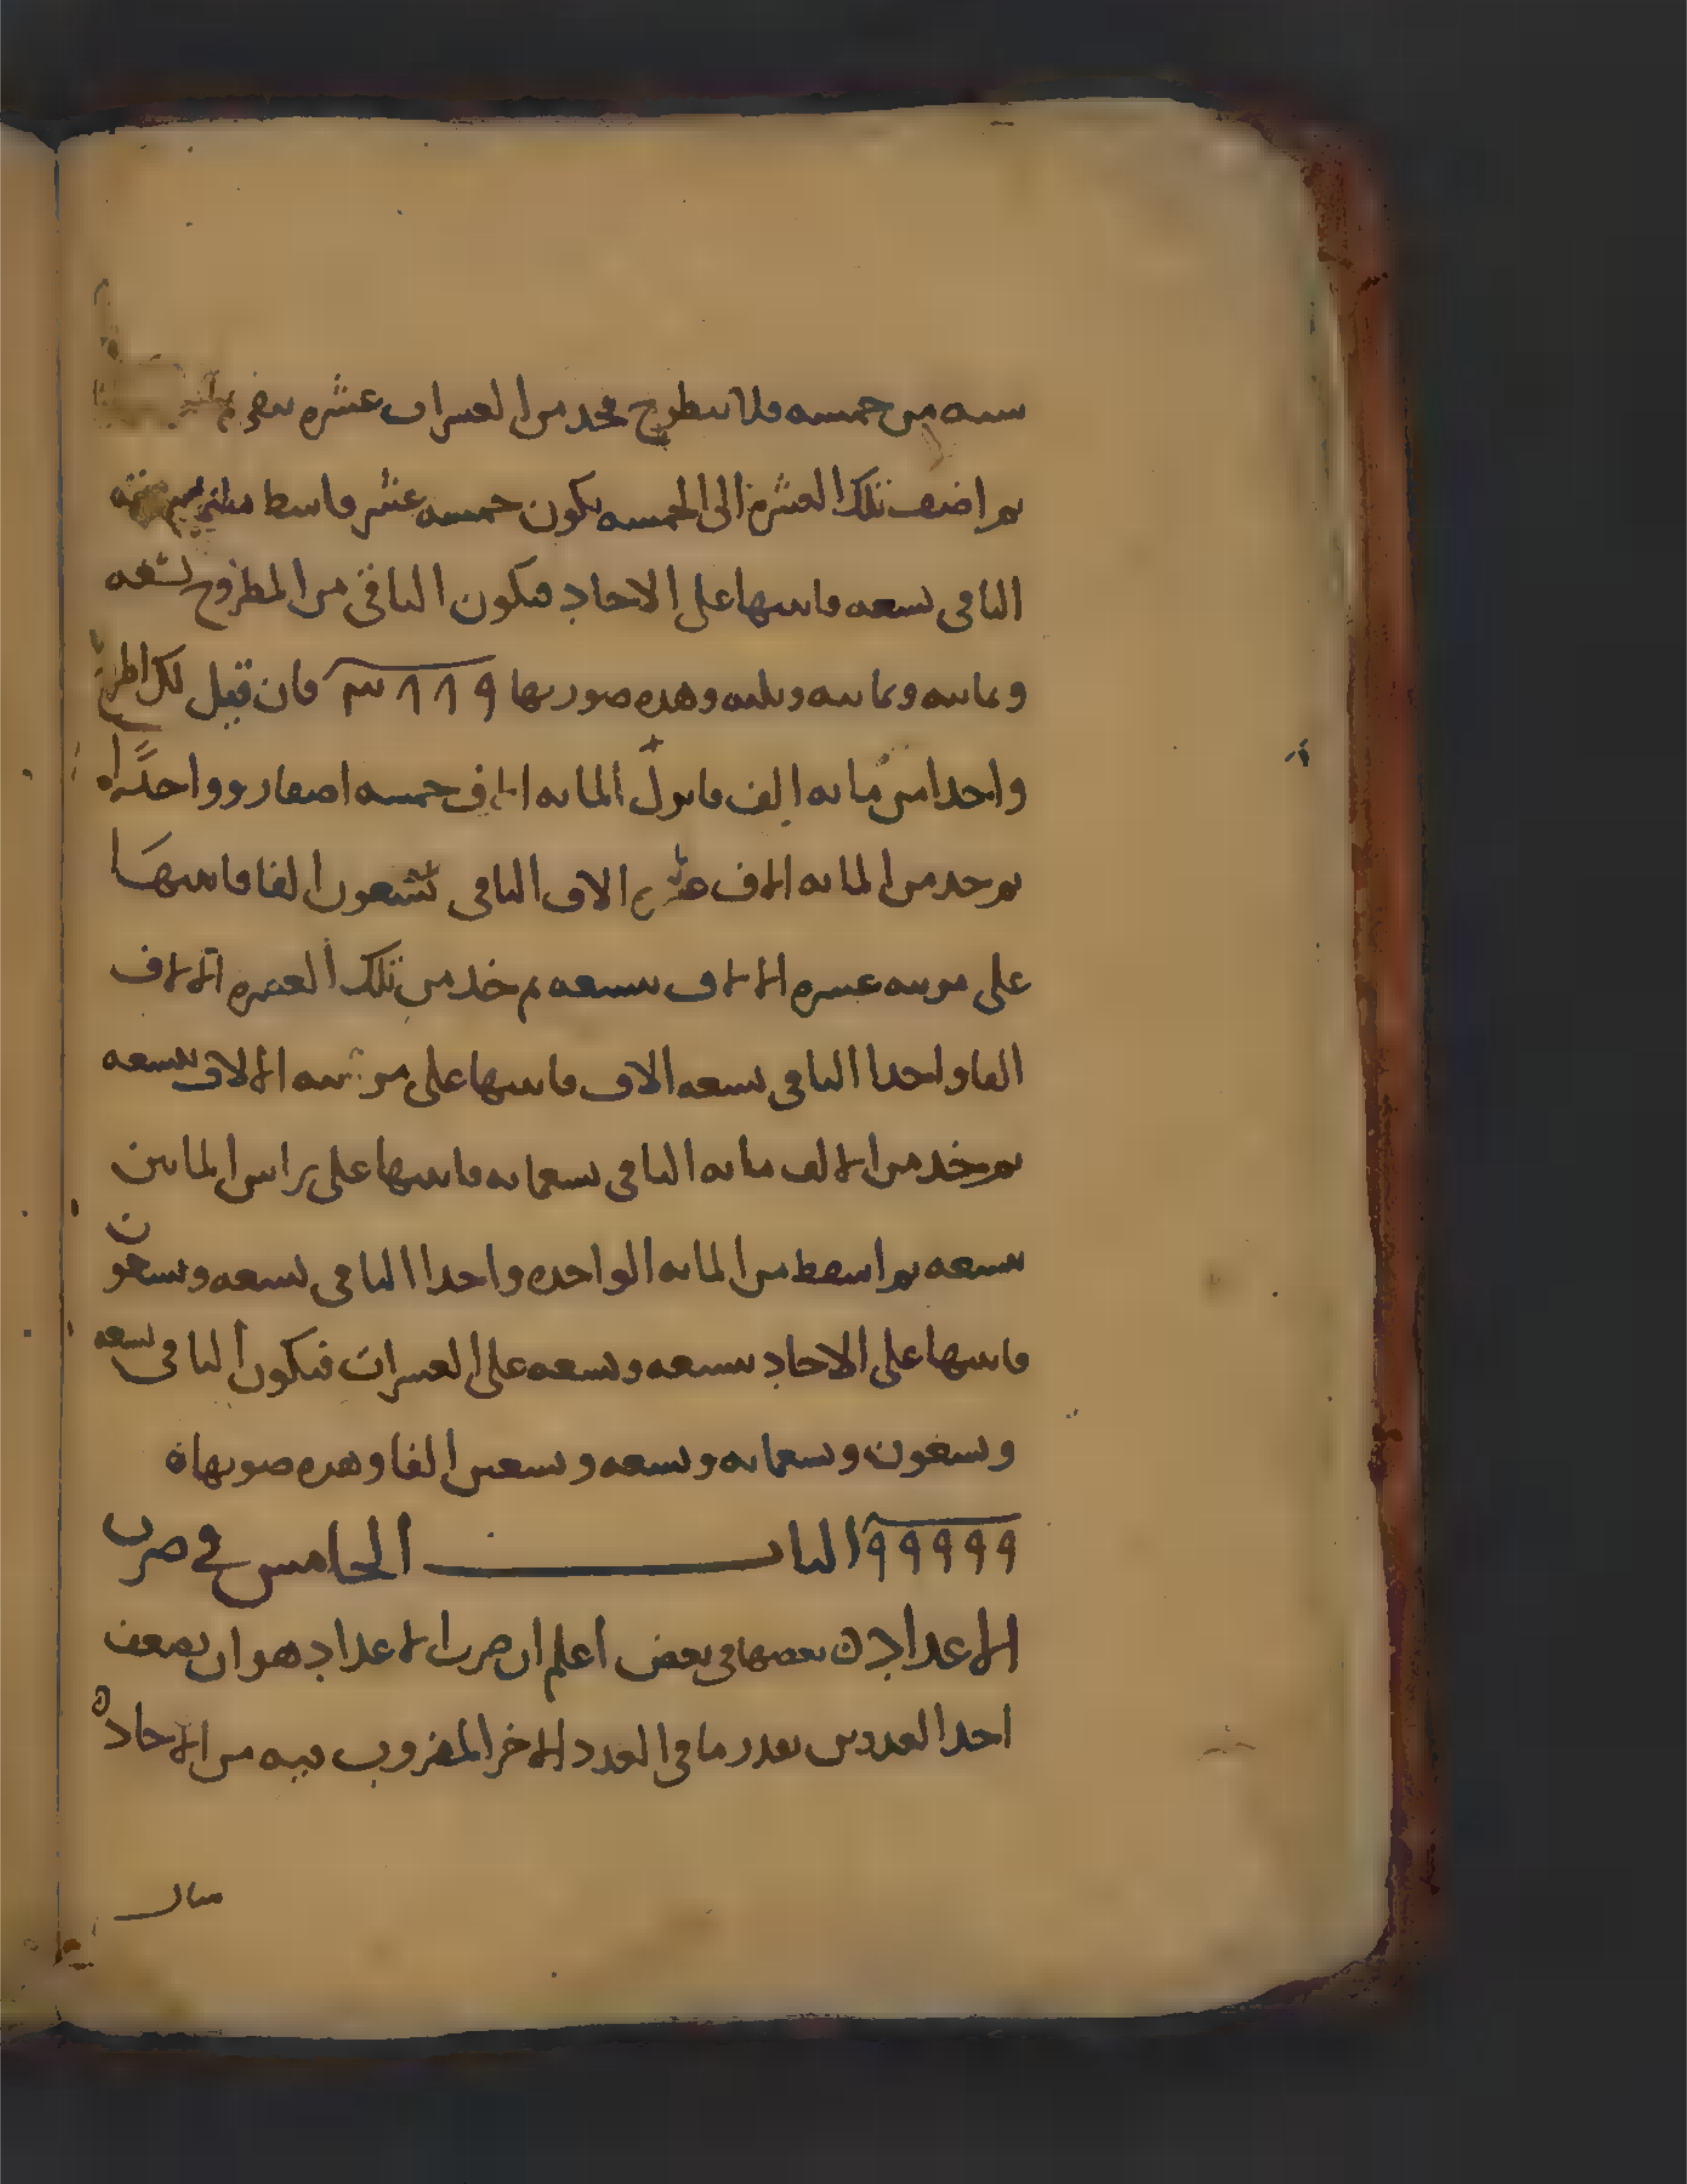 سته من خمسه فلا ينطرح فخذ من العشرات عشره
ثم اضف تلك العشرة الى الخمسه يكون خمسه عشر فاسقط
الباقى تسعه فاثبتها على الاحاد فيكون الباقى من المطروح تسعه
وثمانيه وثمانيه وثلثه وهذه صورتها ٩ ٨ ٨ ٣ فان قيل لك اطرح
واحدا من مائه الف فانزل المائه الاف خمسه اصفار وواحدًا
ثم خذ من المائه الاف عشره الاف الباقى تسعون الفا فاثبتها
على مرتبه عشره الالاف تسعه ثم خذ من تلك العشره الالاف
الفا واحدا الباقى تسعه الاف فاثبتها على مرتبه الالاف تسعه
ثم خذ من الالف مائه الباقى تسعمائه فاثبتها على راس المائتين
تسعه ثم اسقط من المائه الواحده واحدا الباقى تسعه وتسعون
فاثبتها على الاحاد تسعه وتسعه على العشرات فيكون الباقى تسعه
وتسعون وتسعمائه وتسعه وتسعين الفا وهذه صورتها
٩ ٩ ٩ ٩ ٩ الباب الخامس في ضرب
الاعداد بعضها في بعض اعلم ان ضرب الاعداد هو ان يضعف
احد العددين بقدر ما في العدد الاخر المضروب فيه من الاحاد
مثال